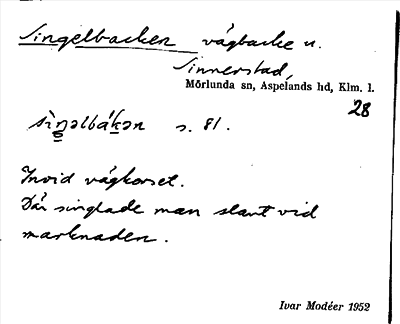 Singelbacken vägbacke u.
Sinnerstad,
Mörlunda sn, Aspelands hd, Klm. l.
28
s. 81.
Invid vägkorset.
Där singlade man slant vid
marknaden.
Ivar Modéer 1952